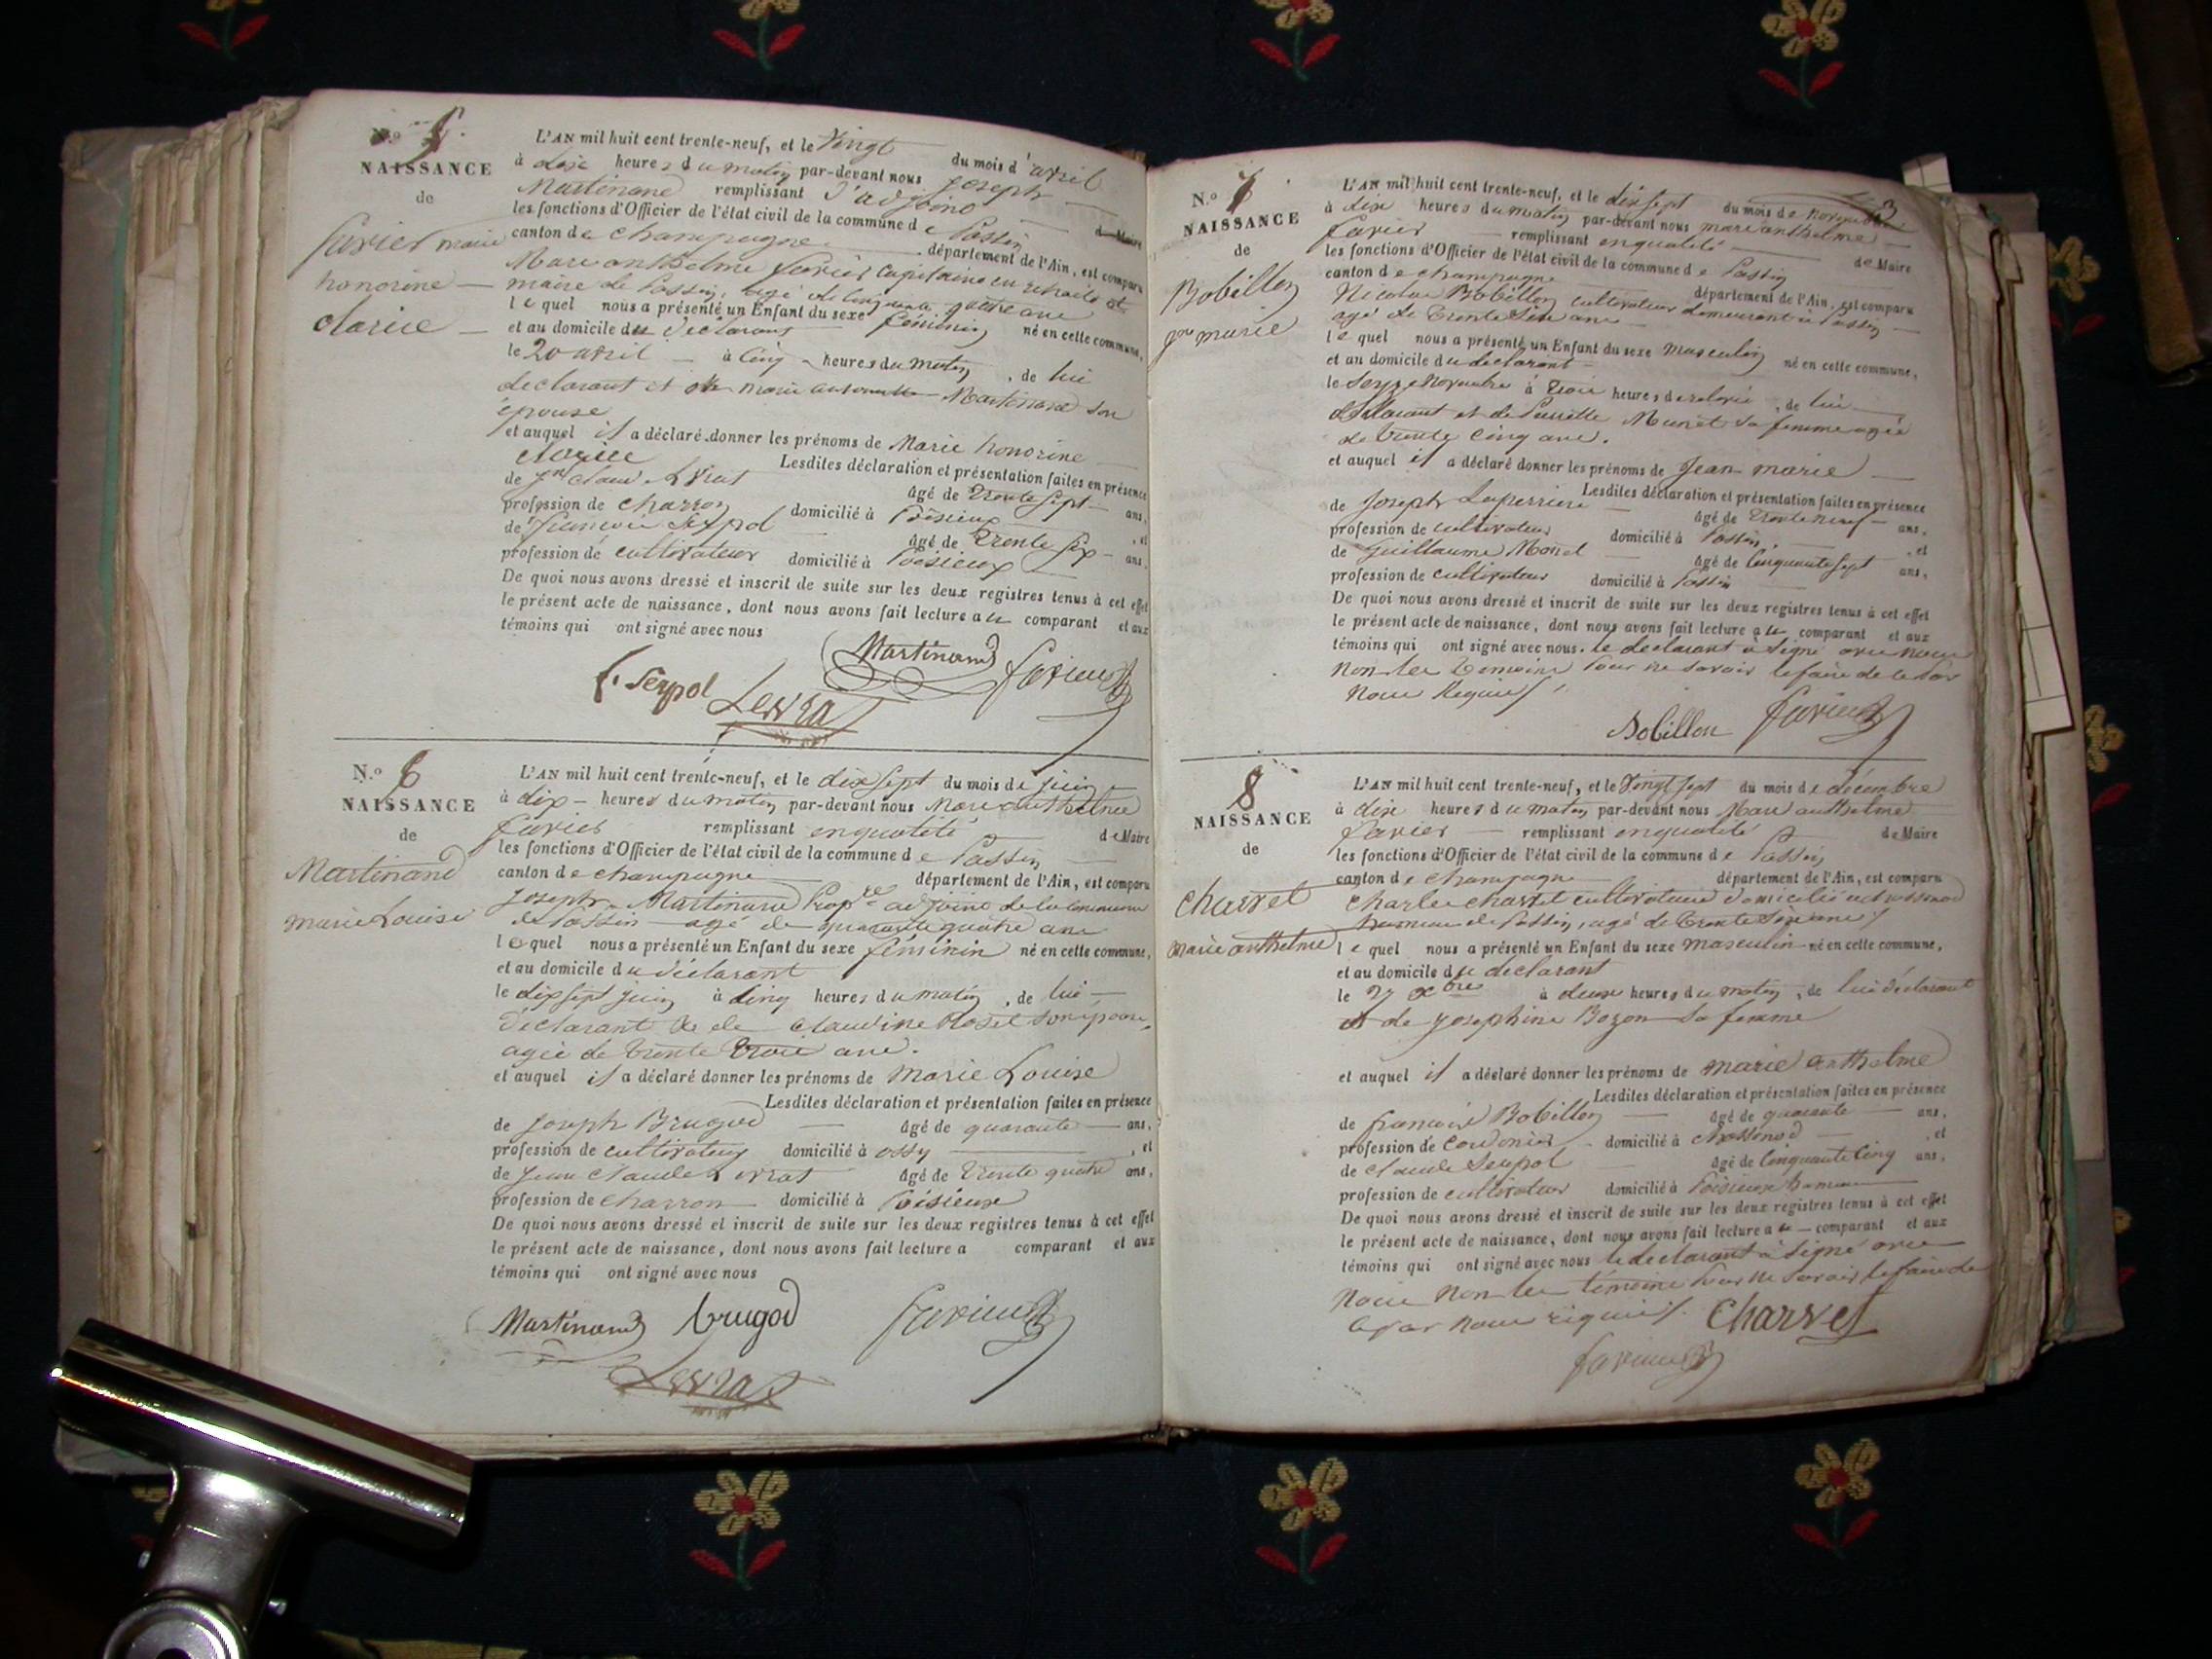 N.o 5.
NAISSANCE
de
favier marie
honorine
clarice
L'AN mil huit cent trente-neuf, et le Vingt du mois d'avril
à dix heures du matin par-devant nous Joseph
Martinand remplissant l'adjoint d Maire
les fonctions d'Officier de l'état civil de la commune de Passin
canton de Champagne département de l'Ain, est comparu
Marc anthelme favier Capitaine en retraite et
maire de Passin, agé de cinquante quatre ans
lequel nous a présenté un Enfant du sexe féminin né en cette commune,
et au domicile du déclarant
le 20 avril à cinq heures du matin, de lui
déclarant et de marie Martinand son
épouse
et auquel il a déclaré donner les prénoms de Marie honorine
clarice Lesdites déclaration et présentation faites en présence
de jn claude âgé de trente sept ans,
profession de charron domicilié à Poisieux, et
de françois Serpol âgé de trente six ans,
profession de cultivateur domicilié à Poisieux
De quoi nous avons dressé et inscrit de suite sur les deux registres tenus à cet effet
le présent acte de naissance, dont nous avons fait lecture au comparant et aux
témoins qui ont signé avec nous
Martinand favier
f. Serpol
N.o 6
NAISSANCE
de
Martinand
marie Louise
L'AN mil huit cent trente-neuf, et le dix sept du mois de juin
à dix heures du matin par-devant nous Marc anthelme
favier remplissant en qualité de Maire
les fonctions d'Officier de l'état civil de la commune de Passin
canton de champagne département de l'Ain, est comparu
Joseph Martinand Propre adjoint de la commune
de Passin agé de quarante quatre ans
lequel nous a présenté un Enfant du sexe féminin né en cette commune,
et au domicile du déclarant
le dix sept juin à cinq heures du matin, de lui
déclarant & de claudine Rosel son épouse,
agée de trente trois ans.
et auquel il a déclaré donner les prénoms de Marie Louise
Lesdites déclaration et présentation faites en présence
de Joseph Brugod âgé de quarante ans,
profession de cultivateur domicilié à ossy, et
de jean claude âgé de trente quatre ans,
profession de charron domicilié à Poisieux
De quoi nous avons dressé et inscrit de suite sur les deux registres tenus à cet effet
le présent acte de naissance, dont nous avons fait lecture a comparant et aux
témoins qui ont signé avec nous
Martinand brugod favier
3
N.o 7
NAISSANCE
de
Bobillon
jn marie
L'AN mil huit cent trente-neuf, et le dix sept du mois de novembre
à dix heures du matin par-devant nous marc anthelme
favier remplissant en qualité de Maire
les fonctions d'Officier de l'état civil de la commune de Passin
canton de champagne département de l'Ain, est comparu
Nicolas Bobillon cultivateur demeurant à Passin
agé de trente six ans
lequel nous a présenté un Enfant du sexe masculin né en cette commune,
et au domicile du déclarant
le seize novembre à trois heures de relevée, de lui
déclarant et de sa femme agée
de trente cinq ans.
et auquel il a déclaré donner les prénoms de Jean marie
Lesdites déclaration et présentation faites en présence
de Joseph Laperriere âgé de trente neuf ans,
profession de cultivateur domicilié à Passin, et
de Guillaume Monet âgé de cinquante sept ans,
profession de cultivateur domicilié à Passin
De quoi nous avons dressé et inscrit de suite sur les deux registres tenus à cet effet
le présent acte de naissance, dont nous avons fait lecture au comparant et aux
témoins qui ont signé avec nous. le déclarant à signé avec nous
non les témoins pour ne savoir le faire de ce par
nous requis
Bobillon favier
8
NAISSANCE
de
Charvet
Marie anthelme
L'AN mil huit cent trente-neuf, et le Vingt sept du mois de décembre
à dix heures du matin par-devant nous Marc anthelme
favier remplissant en qualité de Maire
les fonctions d'Officier de l'état civil de la commune de Passin
canton de Champagne département de l'Ain, est comparu
Charles charvet cultivateur domicilié à chassonod
hameau de Passin, agé de trente six ans
lequel nous a présenté un Enfant du sexe masculin né en cette commune,
et au domicile du déclarant
le 27 xbre à deux heures du matin, de lui déclarant
et de josephine Bozon sa femme
et auquel il a déclaré donner les prénoms de marie anthelme
Lesdites déclaration et présentation faites en présence
de françois Bobillon âgé de quarante ans,
profession de cordonier domicilié à chassonod, et
de claude Serpol âgé de cinquante cinq ans,
profession de cultivateur domicilié à Poisieux hameau
De quoi nous avons dressé et inscrit de suite sur les deux registres tenus à cet effet
le présent acte de naissance, dont nous avons fait lecture au comparant et aux
témoins qui ont signé avec nous le déclarant à signé avec
nous non les témoins pour ne savoir le faire de
ce par nous requis. Charvet
favier